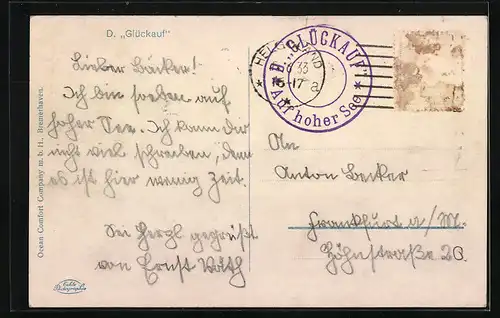 D. „Glückauf“
Lieber Bäcker!
Ich bin soeben auf
hoher See. Ich kann Dir
nicht viel schreiben, denn
es ist hier wenig Zeit.
Sei herzl. gegrüßt
von Ernst
HELGOLAND
33
-17 a
* D. „GLÜCKAUF“ *
Auf hoher See
An
Anton Becker
Frankfurt a/M.
Höhnstraße 20.
Ocean Comfort Company m. b. H., Bremerhaven.
Echte
Photographie